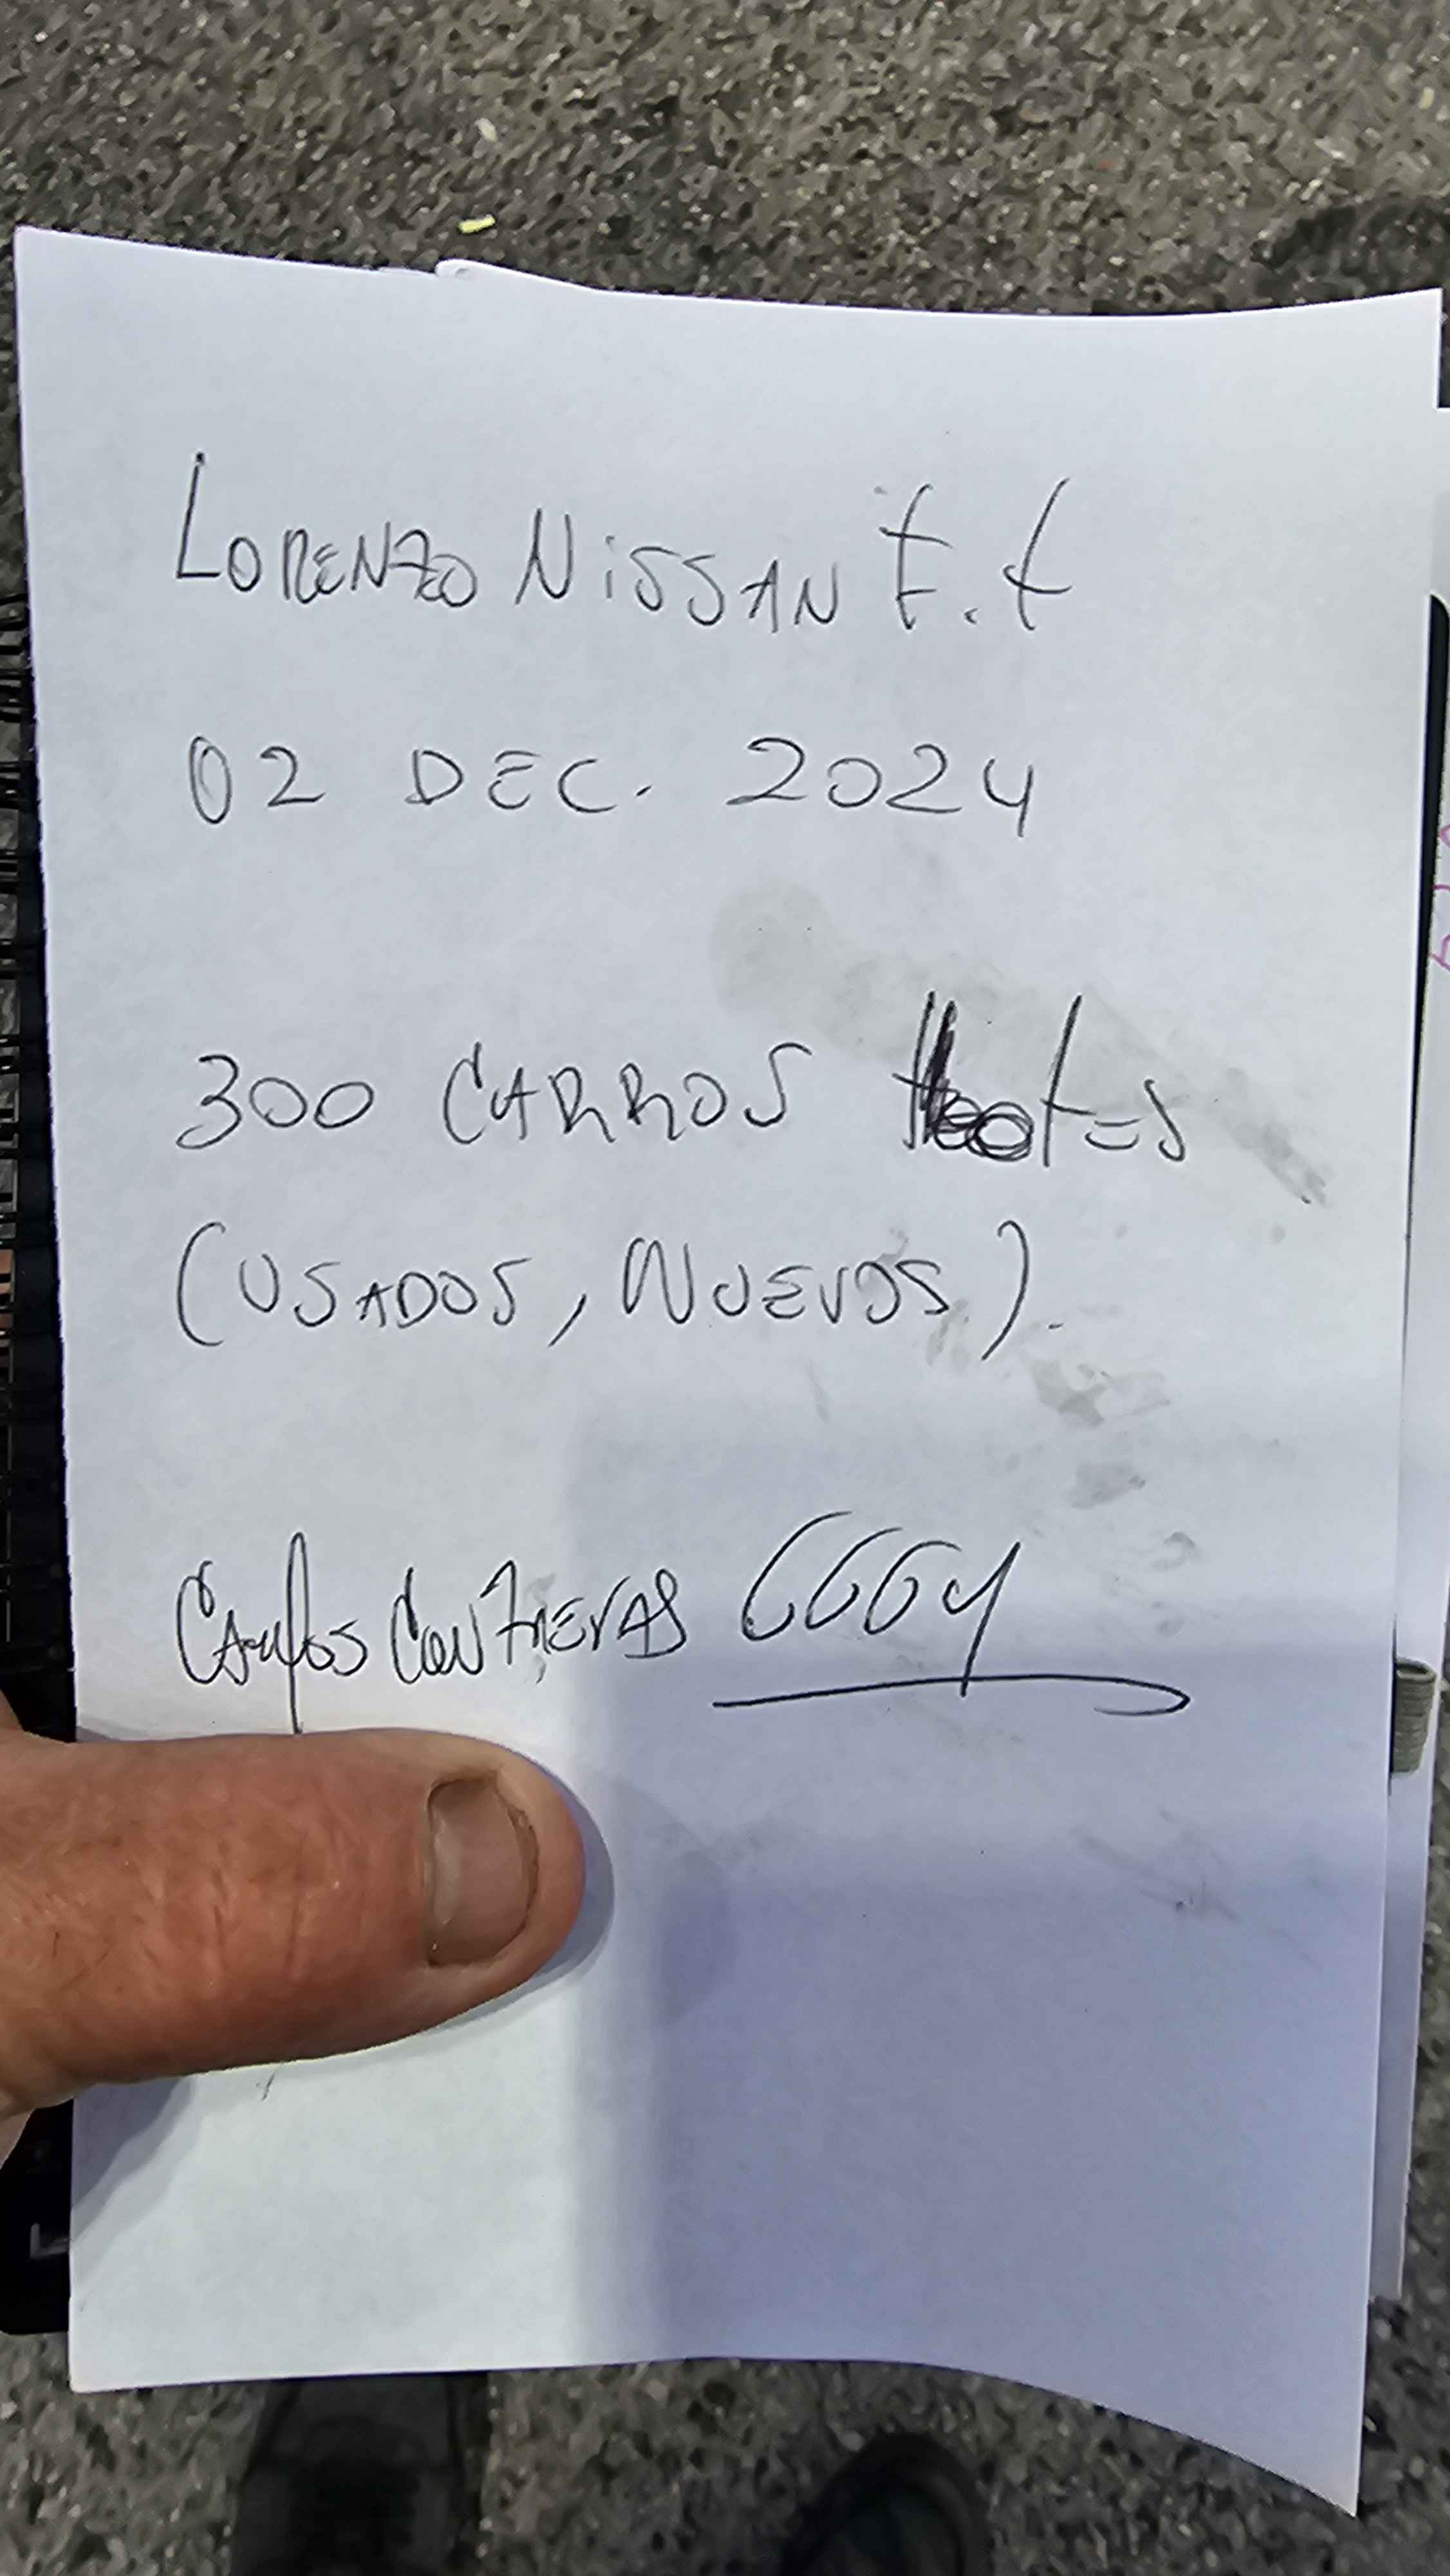 LORENZO NISSAN F.t
02 DEC. 2024
300 CARROS
(USADOS, NUEVOS).
Carlos Contreras